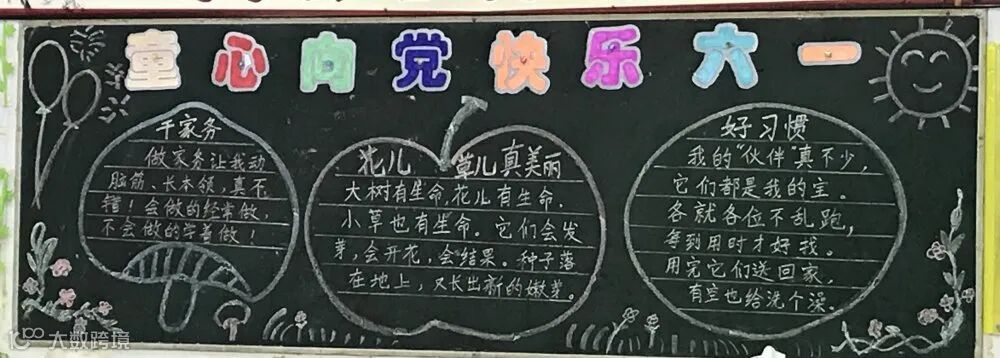 童心向党快乐六一
干家务
做家务让我动
脑筋、长本领，真不
错！会做的经常做，
不会做的学着做！
花儿 草儿真美丽
大树有生命，花儿有生命，
小草也有生命。它们会发
芽，会开花，会结果。种子落
在地上，又长出新的嫩芽。
好习惯
我的“伙伴”真不少，
它们都是我的宝。
各就各位不乱跑，
每到用时才好找。
用完它们送回家，
有空也给洗个澡。
大数跨境